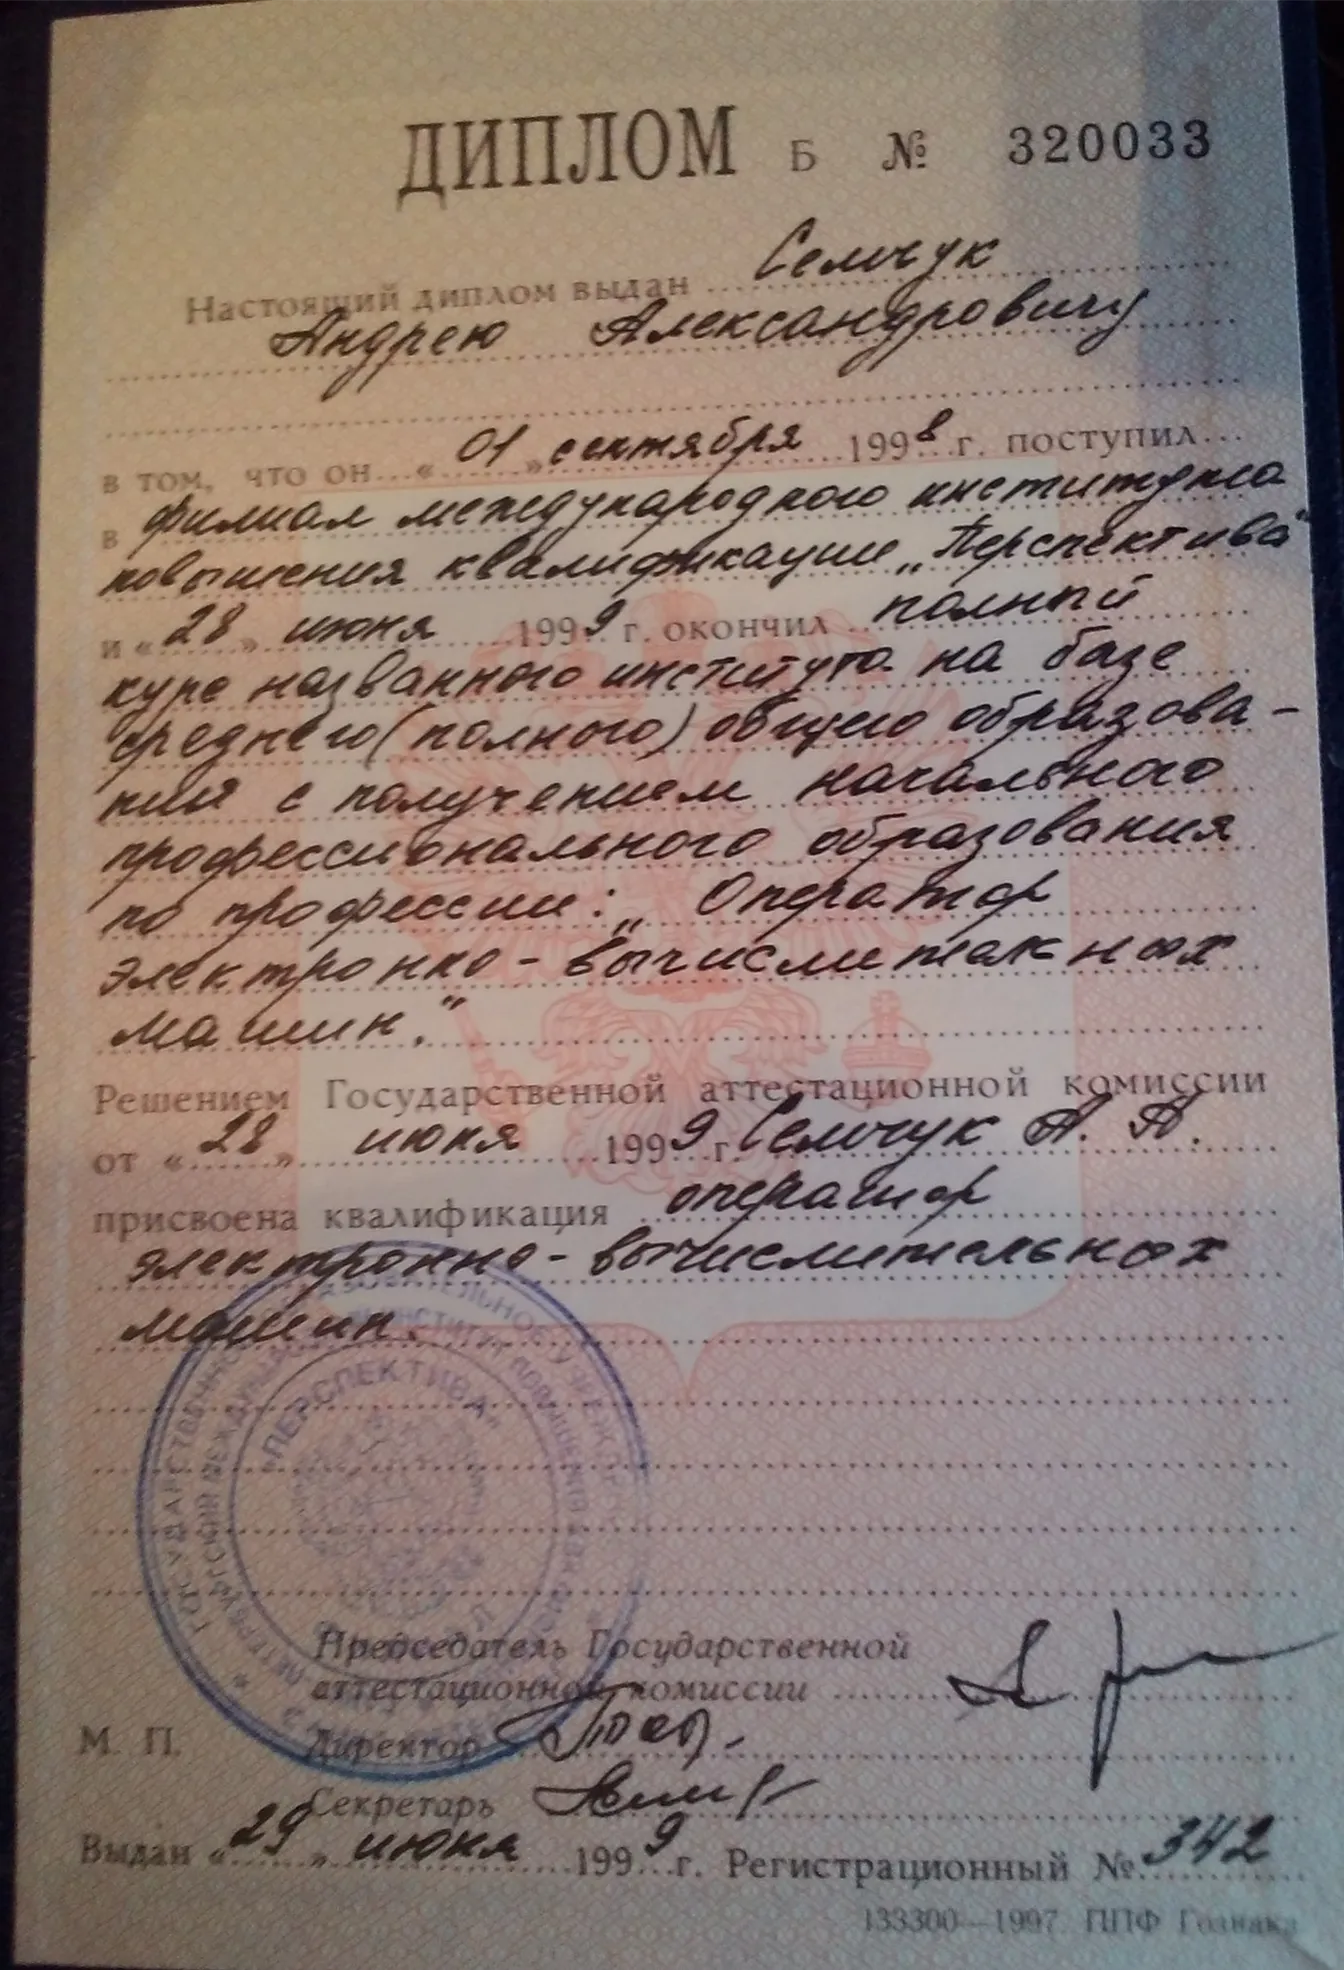 ДИПЛОМ Б № 320033
Настоящий диплом выдан Семчук
Андрею Александровичу
в том, что он «01» сентября 1998 г. поступил
в филиал международного института
повышения квалификации „Перспектива"
и «28» июня 1999 г. окончил полный
курс названного института на базе
среднего (полного) общего образова-
ния с получением начального
профессионального образования
по профессии: „Оператор
электронно-вычислительных
машин."
Решением Государственной аттестационной комиссии
от «28» июня 1999 г. Семчук А. А.
присвоена квалификация оператор
электронно-вычислительных
машин.
"ПЕРСПЕКТИВА"
Председатель Государственной
аттестационной комиссии
М. П. Директор
Секретарь
Выдан «29» июня 1999 г. Регистрационный № 342
133300—1997. ППФ Гознака